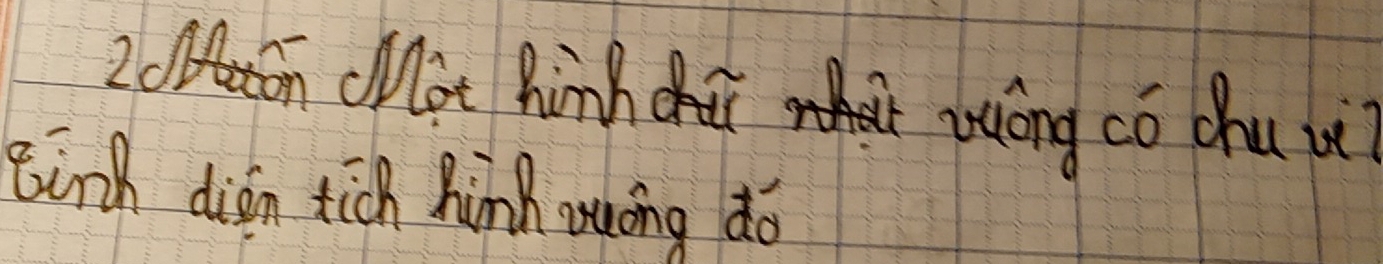 2 Một hình chữ nhật vuông có chu vi
Tính diện tích hình vuông đó